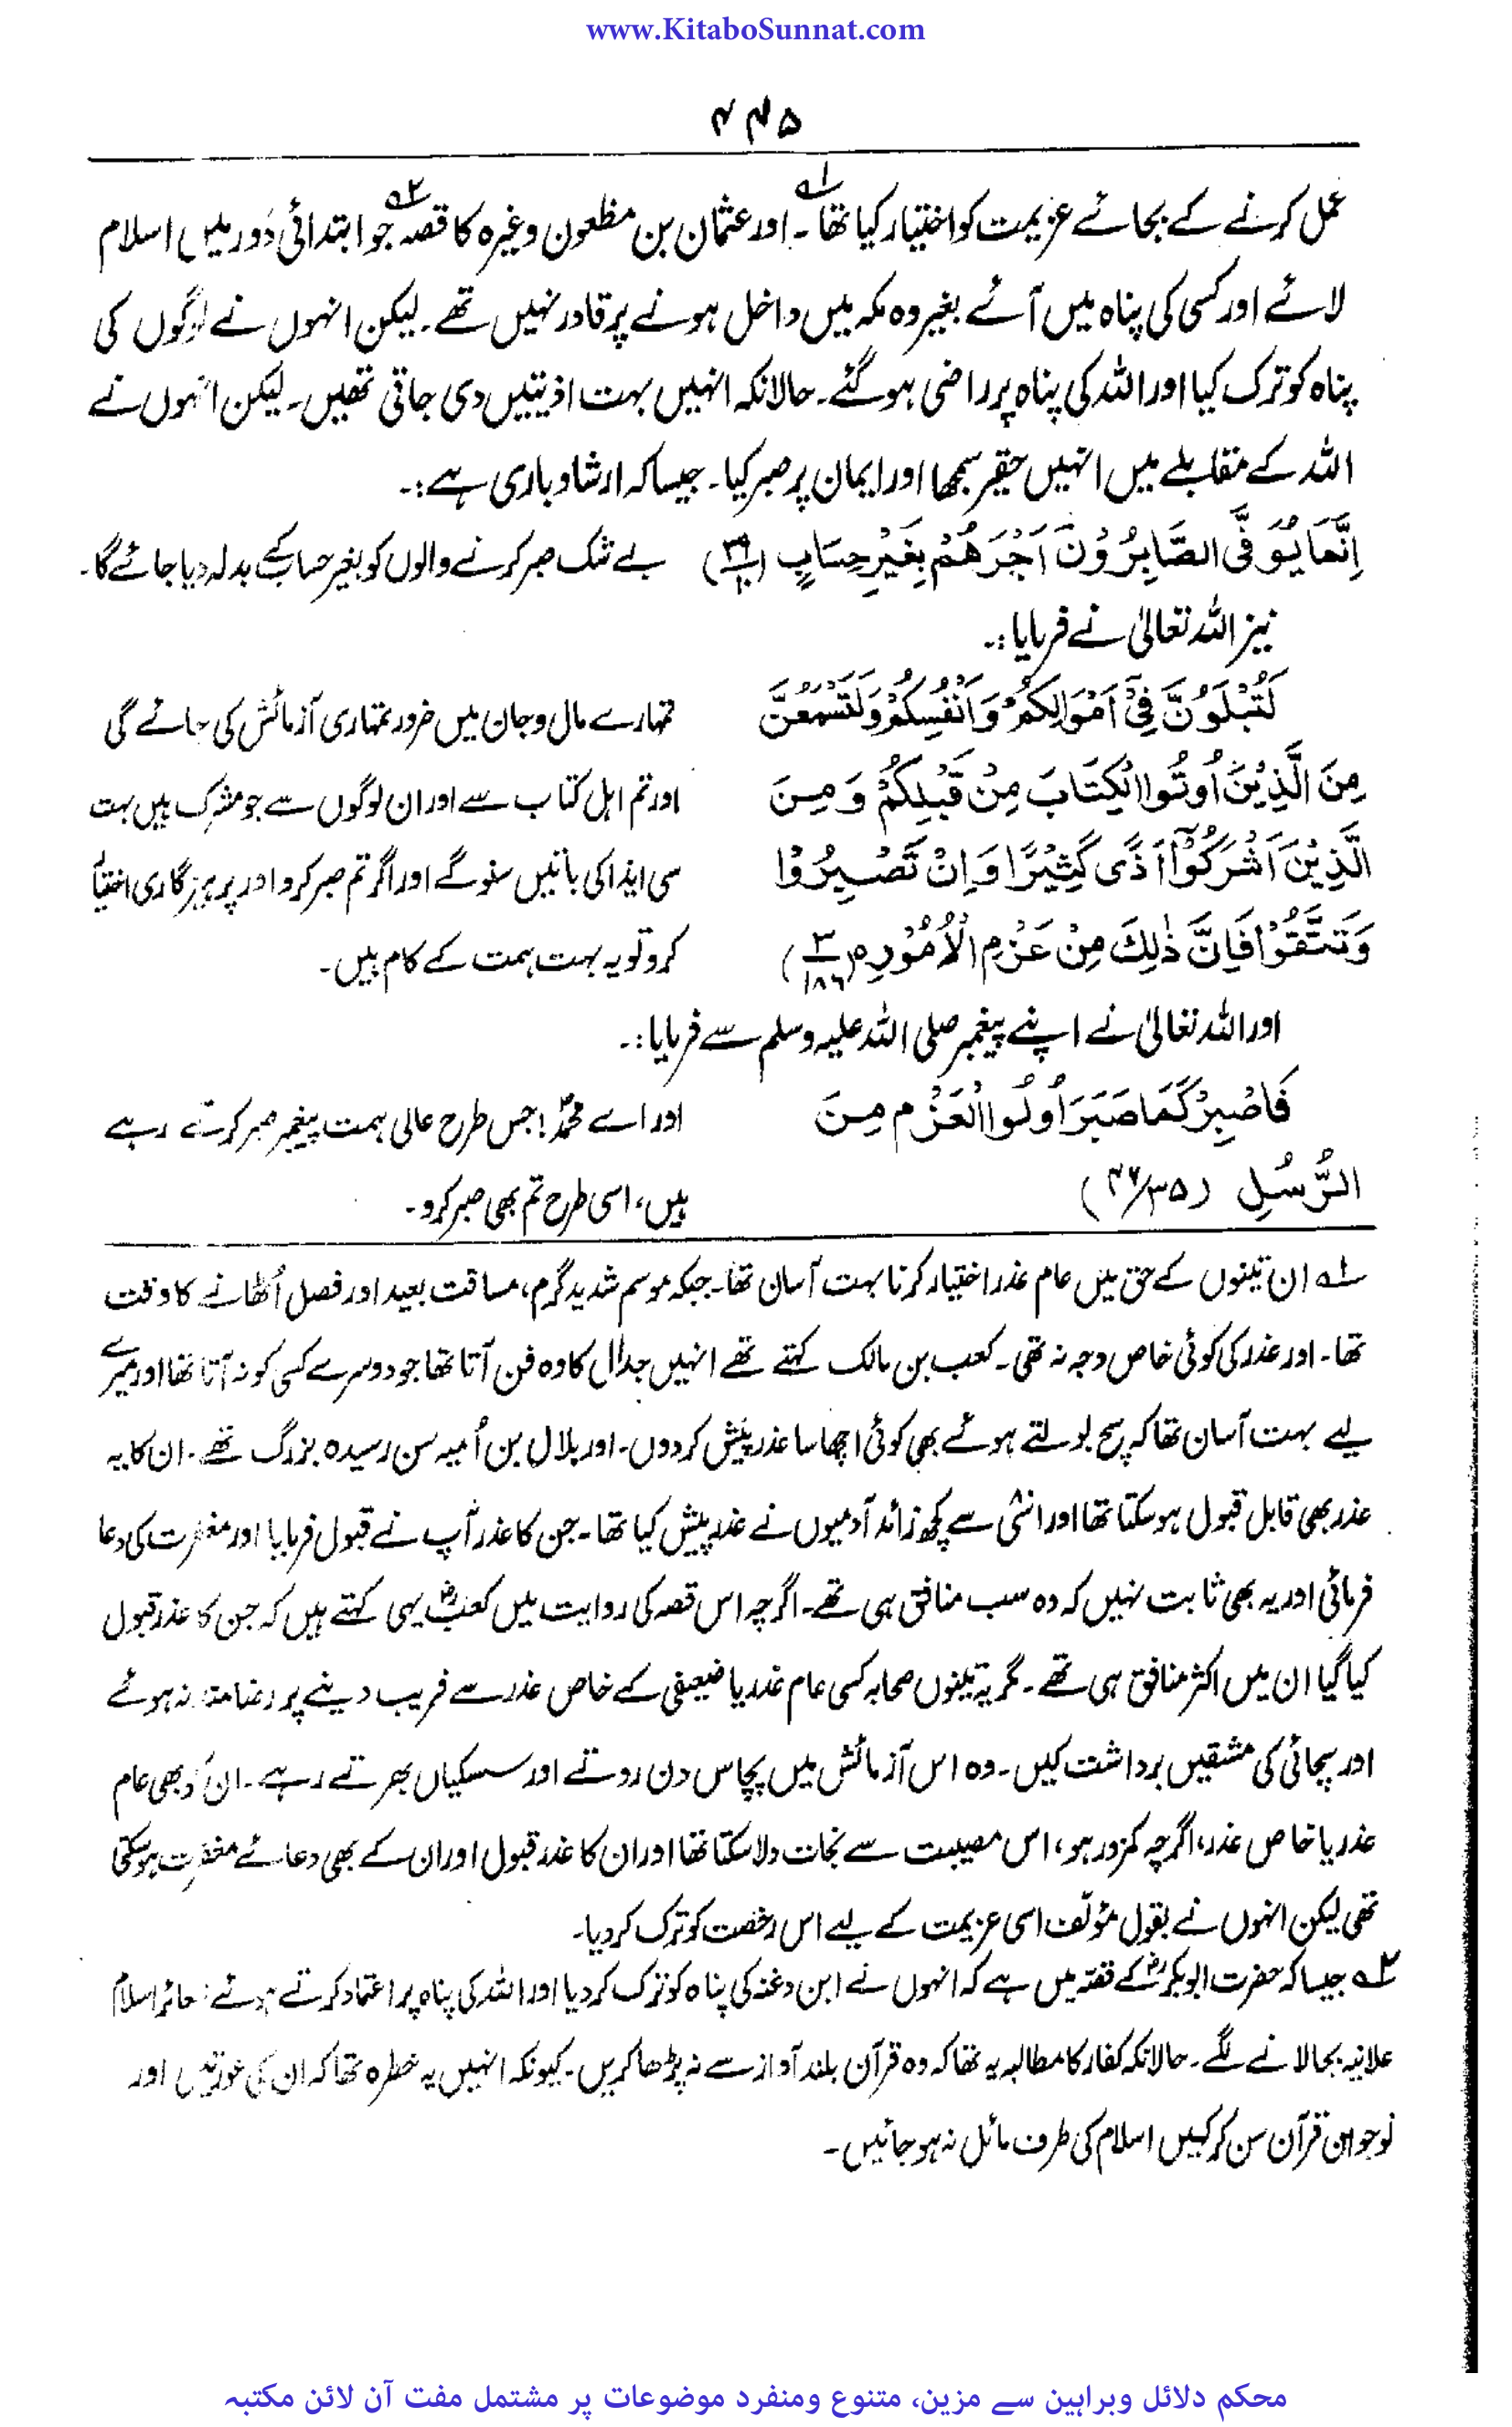 www.KitaboSunnat.com
۴۴۵
عمل کرنے کے بجائے عزیمت کو اختیار کیا تھا۔ ۱؎ اور عثمان بن مظعون وغیرہ کا قصہ ۲؎ جو ابتدائی دَور میں اسلام
لائے اور کسی کی پناہ میں آئے بغیر وہ مکہ میں داخل ہونے پر قادر نہیں تھے۔ لیکن انہوں نے لوگوں کی
پناہ کو ترک کیا اور اللہ کی پناہ پر راضی ہو گئے۔ حالانکہ انہیں بہت اذیتیں دی جاتی تھیں۔ لیکن انہوں نے
اللہ کے مقابلے میں انہیں حقیر سمجھا اور ایمان پر صبر کیا۔ جیسا کہ ارشاد باری ہے:۔
اِنَّمَا یُوَفَّی الصَّابِرُوْنَ اَجْرَهُمْ بِغَیْرِ حِسَابٍ (۳۹/۱۰) بے شک صبر کرنے والوں کو بغیر حساب کے بدلہ دیا جائے گا۔
نیز اللہ تعالیٰ نے فرمایا:۔
لَتُبْلَوُنَّ فِیْ اَمْوَالِکُمْ وَاَنْفُسِکُمْ وَلَتَسْمَعُنَّ تمہارے مال و جان میں ضرور تمہاری آزمائش کی جائے گی
مِنَ الَّذِیْنَ اُوتُوا الْکِتَابَ مِنْ قَبْلِکُمْ وَمِنَ اور تم اہل کتاب سے اور ان لوگوں سے جو مشرک ہیں بہت
الَّذِیْنَ اَشْرَکُوْٓا اَذًی کَثِیْرًا وَاِنْ تَصْبِرُوْا سی ایذا کی باتیں سنو گے اور اگر تم صبر کرو اور پرہیزگاری اختیار
وَتَتَّقُوْا فَاِنَّ ذٰلِکَ مِنْ عَزْمِ الْاُمُوْرِ ہ (۳/۱۸۶) کرو تو یہ بہت ہمت کے کام ہیں۔
اور اللہ تعالیٰ نے اپنے پیغمبر صلی اللہ علیہ وسلم سے فرمایا:۔
فَاصْبِرْ کَمَا صَبَرَ اُولُوا الْعَزْمِ مِنَ اور اے محمدؐ! جس طرح عالی ہمت پیغمبر صبر کرتے رہے
الرُّسُلِ (۴۶/۳۵) ہیں، اسی طرح تم بھی صبر کرو۔
۱؎ ان تینوں کے حق میں عام عذر اختیار کرنا بہت آسان تھا۔ جبکہ موسم شدید گرم، مسافت بعید اور فصل اُٹھانے کا وقت
تھا۔ اور عذر کی کوئی خاص وجہ نہ تھی۔ کعب بن مالک کہتے تھے انہیں جدال کا وہ فن آتا تھا جو دوسرے کسی کو نہ آتا تھا اور میرے
لیے بہت آسان تھا کہ سچ بولتے ہوئے بھی کوئی اچھا سا عذر پیش کر دوں۔ اور ہلال بن اُمیہ سن رسیدہ بزرگ تھے۔ ان کا یہ
عذر بھی قابل قبول ہو سکتا تھا اور اسّی سے کچھ زائد آدمیوں نے عذر پیش کیا تھا۔ جن کا عذر آپؐ نے قبول فرمایا اور مغفرت کی دعا
فرمائی اور یہ بھی ثابت نہیں کہ وہ سب منافق ہی تھے۔ اگرچہ اس قصہ کی روایت میں کعبؓ یہی کہتے ہیں کہ جن کا عذر قبول
کیا گیا ان میں اکثر منافق ہی تھے۔ مگر یہ تینوں صحابہ کسی عام عذر یا ضعیفی کے خاص عذر سے فریب دینے پر رضامند نہ ہوئے
اور سچائی کی مشقیں برداشت کیں۔ وہ اس آزمائش میں پچاس دن روتے اور سسکیاں بھرتے رہے۔ ان کو بھی عام
عذر یا خاص عذر، اگرچہ کمزور ہو، اس مصیبت سے نجات دلا سکتا تھا اور ان کا عذر قبول اور ان کے بھی دعائے مغفرت ہو سکتی
تھی لیکن انہوں نے بقول مؤلف اسی عزیمت کے لیے اس رخصت کو ترک کر دیا۔
۲؎ جیسا کہ حضرت ابو بکرؓ کے قصّہ میں ہے کہ انہوں نے ابن دغنہ کی پناہ کو ترک کر دیا اور اللہ کی پناہ پر اعتماد کرتے ہوئے شعائر اسلام
علانیہ بجا لانے لگے۔ حالانکہ کفار کا مطالبہ یہ تھا کہ وہ قرآن بلند آواز سے نہ پڑھا کریں۔ کیونکہ انہیں یہ خطرہ تھا کہ ان کی عورتیں اور
نوجوان قرآن سن کر کہیں اسلام کی طرف مائل نہ ہو جائیں۔
محکم دلائل وبراہین سے مزین، متنوع ومنفرد موضوعات پر مشتمل مفت آن لائن مکتبہ